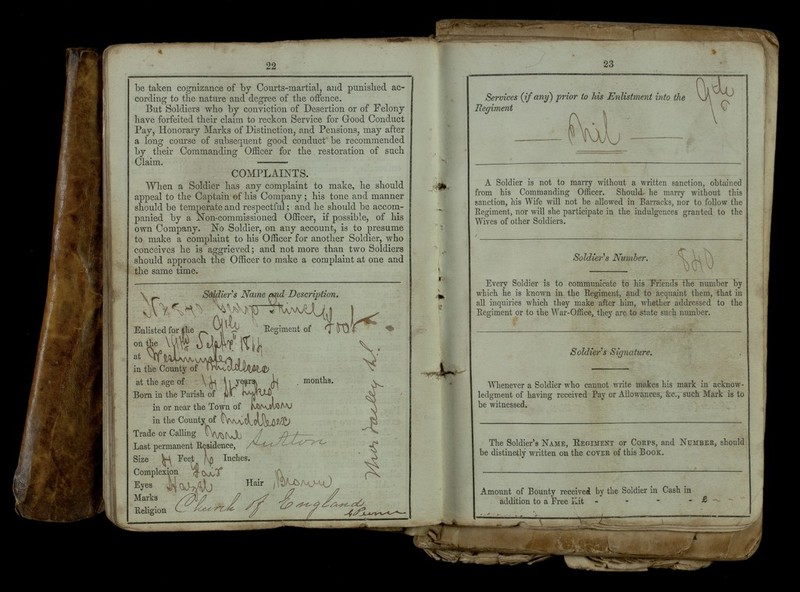 22
be taken cognizance of by Courts-martial, and punished ac-
cording to the nature and degree of the offence.
But Soldiers who by conviction of Desertion or of Felony
have forfeited their claim to reckon Service for Good Conduct
Pay, Honorary Marks of Distinction, and Pensions, may after
a long course of subsequent good conduct be recommended
by their Commanding Officer for the restoration of such
Claim.
COMPLAINTS.
When a Soldier has any complaint to make, he should
appeal to the Captain of his Company; his tone and manner
should be temperate and respectful; and he should be accom-
panied by a Non-commissioned Officer, if possible, of his
own Company. No Soldier, on any account, is to presume
to make a complaint to his Officer for another Soldier, who
conceives he is aggrieved; and not more than two Soldiers
should approach the Officer to make a complaint at one and
the same time.
Soldier's Name and Description.
Enlisted for the 9th Regiment of Foot
on the Septr
at Westminster
in the County of Middlesex
at the age of years months.
Born in the Parish of St Lukes
in or near the Town of London
in the County of Middlesex
Trade or Calling None
Last permanent Residence, Sutton
Size Feet Inches.
Complexion Fair
Eyes Hazel Hair Brown
Marks
Religion Church of England
23
Services (if any) prior to his Enlistment into the 9th
Regiment
Nil
A Soldier is not to marry without a written sanction, obtained
from his Commanding Officer. Should he marry without this
sanction, his Wife will not be allowed in Barracks, nor to follow the
Regiment, nor will she participate in the indulgences granted to the
Wives of other Soldiers.
Soldier's Number. 840
Every Soldier is to communicate to his Friends the number by
which he is known in the Regiment, and to acquaint them, that in
all inquiries which they make after him, whether addressed to the
Regiment or to the War-Office, they are to state such number.
Soldier's Signature.
Whenever a Soldier who cannot write makes his mark in acknow-
ledgment of having received Pay or Allowances, &c., such Mark is to
be witnessed.
The Soldier's NAME, REGIMENT or CORPS, and NUMBER, should
be distinctly written on the COVER of this BOOK.
Amount of Bounty received by the Soldier in Cash in
addition to a Free Kit - - - - £ - -